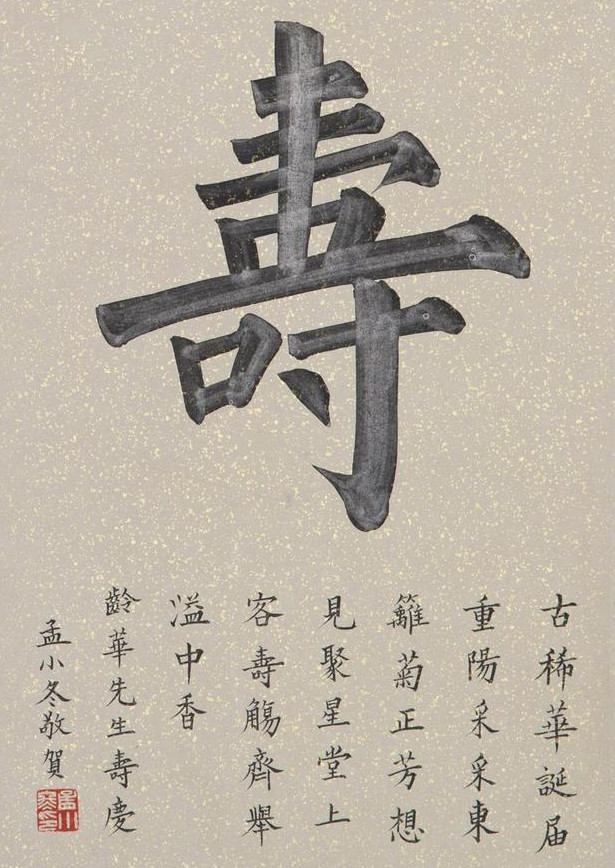 壽
古稀華誕届
重陽采采東
籬菊正芳想
見聚星堂上
客壽觴齊舉
溢中香
齡華先生壽慶
孟小冬敬賀